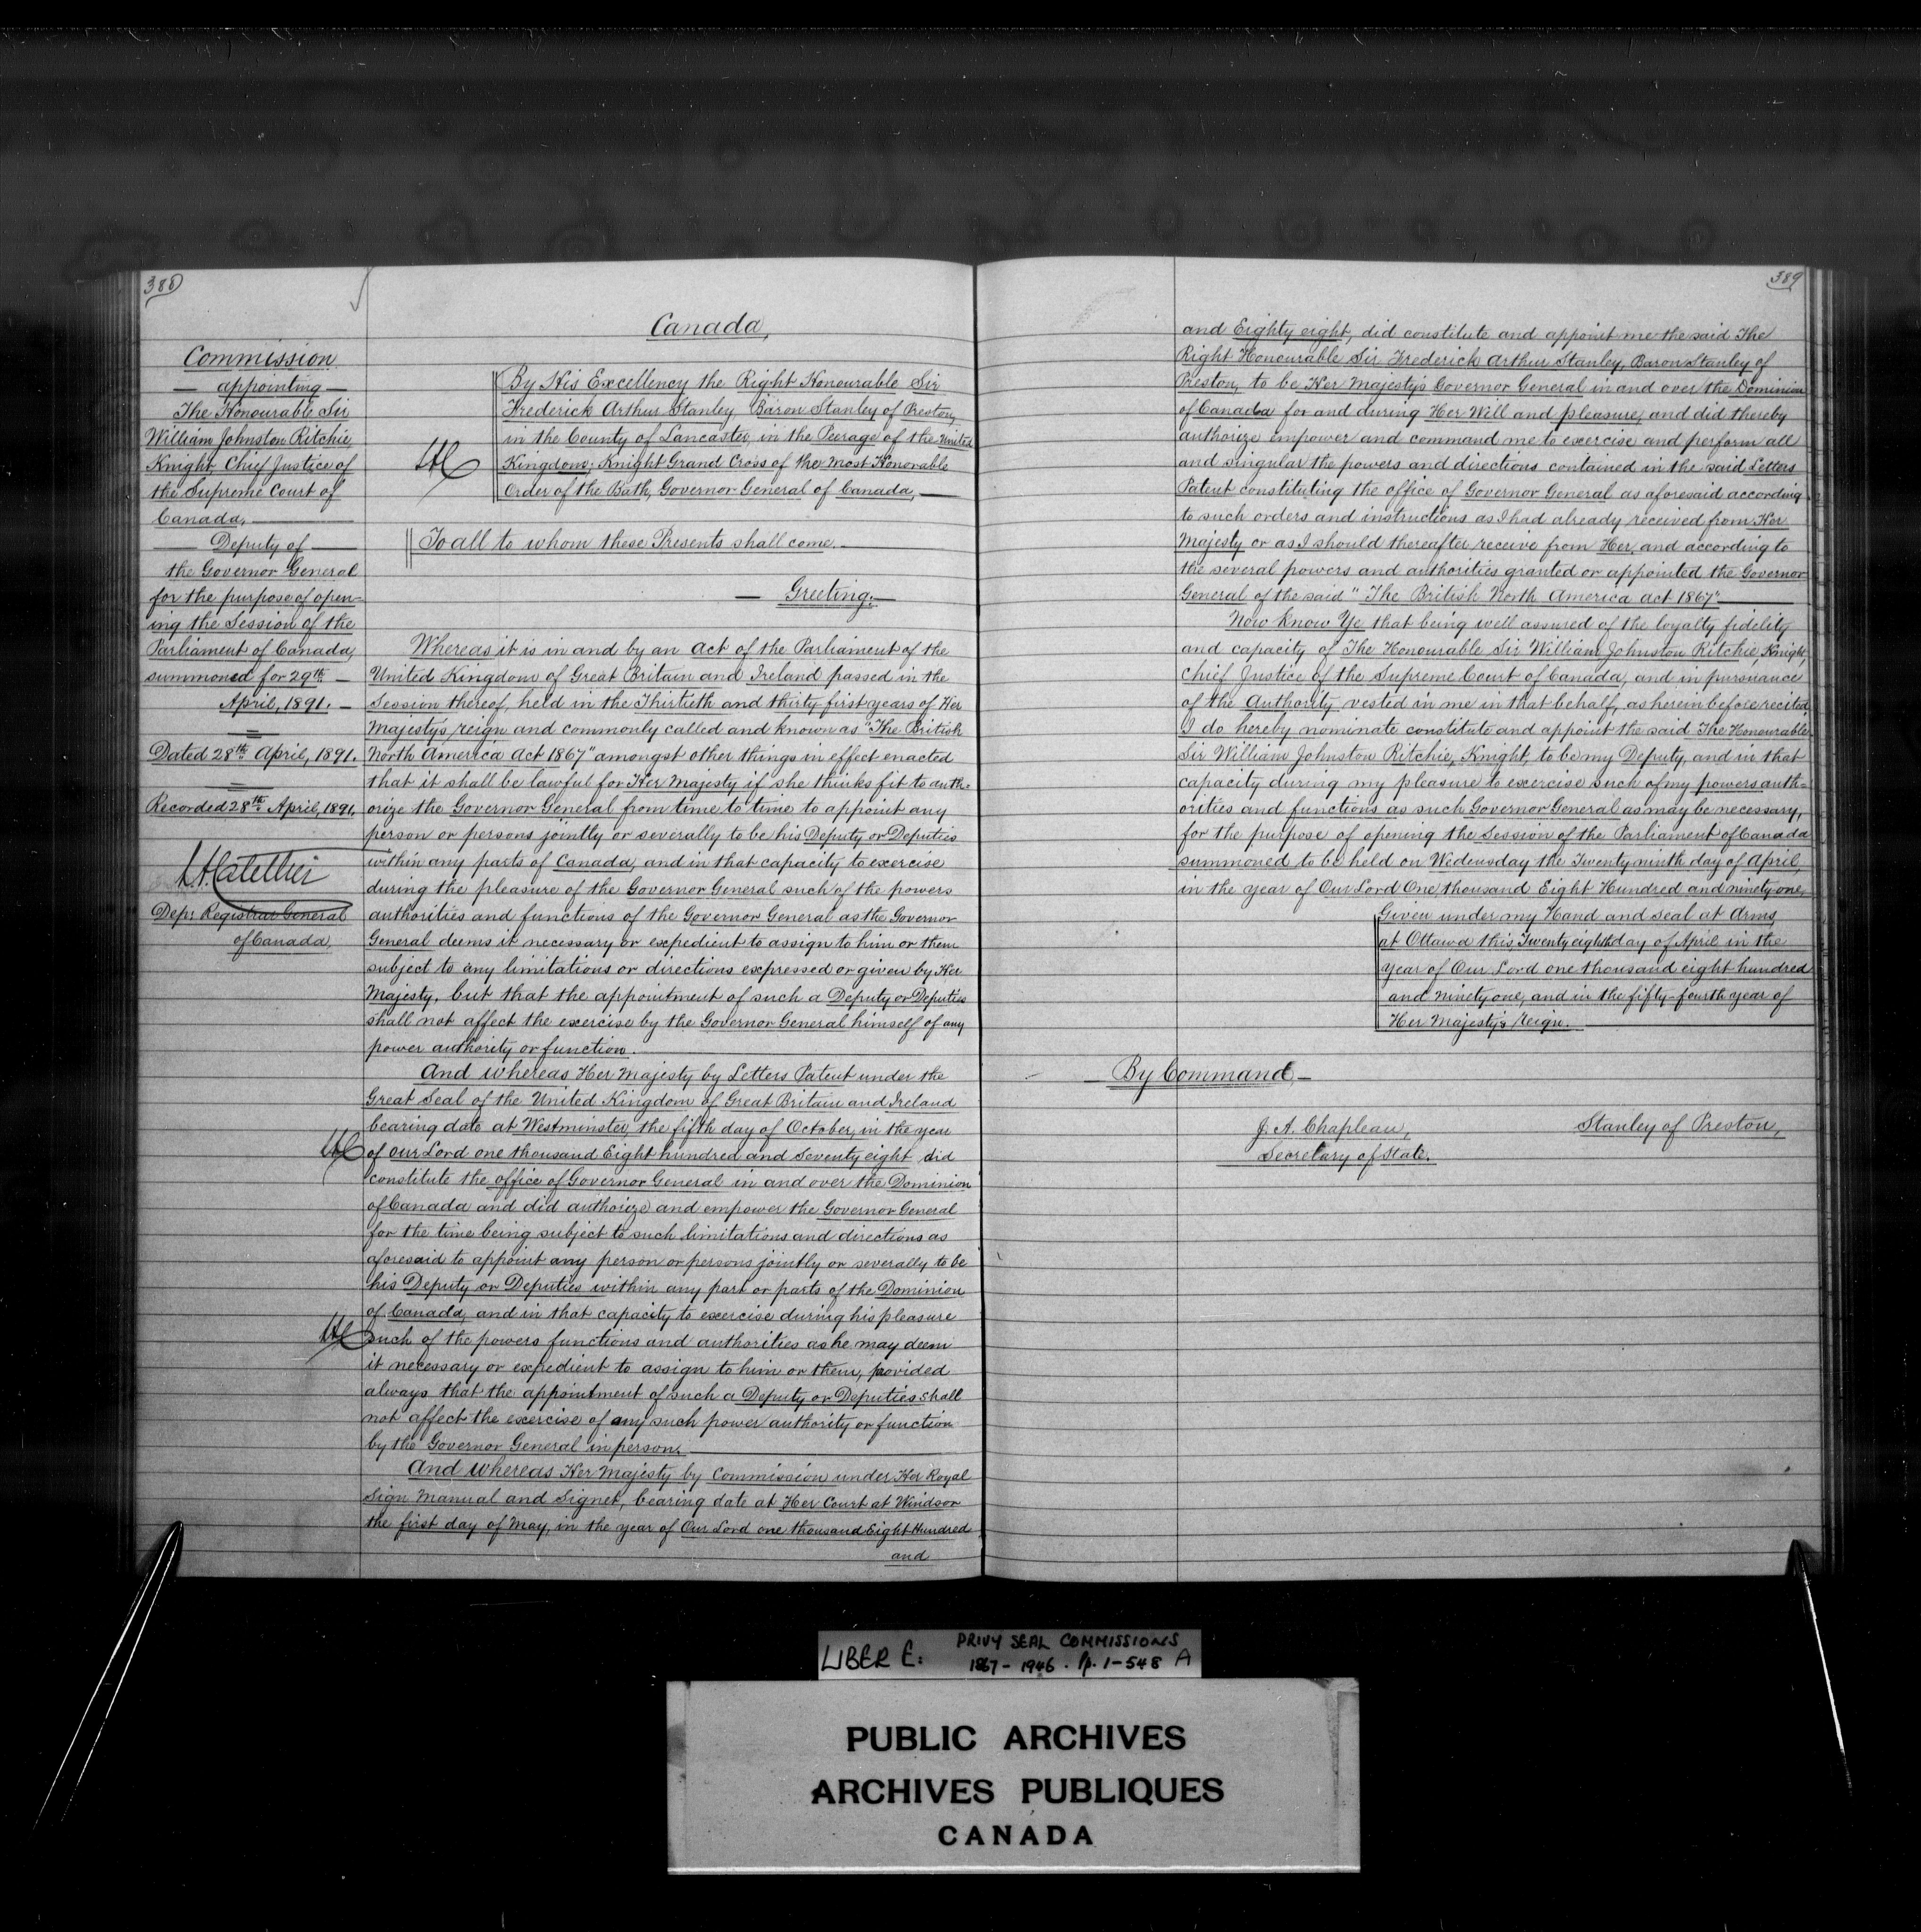 388
Commission
— appointing —
The Honourable Sir
William Johnston Ritchie
Knight, Chief Justice of
the Supreme Court of
Canada,
Deputy of
the Governor General
for the purpose of open-
ing the Session of the
Parliament of Canada,
summoned for 29th —
April, 1891. —
Dated 28th April, 1891.
Recorded 28th April, 1891.
Depy Registrar General
of Canada,
Canada,
By His Excellency the Right Honourable Sir
Frederick Arthur Stanley, Baron Stanley of Preston,
in the County of Lancaster, in the Peerage of the United
Kingdom; Knight Grand Cross of the Most Honorable
Order of the Bath, Governor General of Canada, —
To all to whom these Presents shall come. —
— Greeting: —
Whereas it is in and by an Act of the Parliament of the
United Kingdom of Great Britain and Ireland passed in the
Session thereof, held in the Thirtieth and thirty first years of Her
Majesty's reign and commonly called and known as "The British
North America Act 1867" amongst other things in effect enacted
that it shall be lawful for Her Majesty if she thinks fit to auth=
orize the Governor General from time to time to appoint any
person or persons jointly or severally to be his Deputy or Deputies
within any parts of Canada, and in that capacity to exercise
during the pleasure of the Governor General such of the powers
authorities and functions of the Governor General as the Governor
General deems it necessary or expedient to assign to him or them
subject to any limitations or directions expressed or given by Her
Majesty, but that the appointment of such a Deputy or Deputies
shall not affect the exercise by the Governor General himself of any
power authority or function.
And whereas Her Majesty by Letters Patent under the
Great Seal of the United Kingdom of Great Britain and Ireland
bearing date at Westminster, the fifth day of October, in the year
of our Lord one thousand Eight hundred and Seventy eight did
constitute the office of Governor General in and over the Dominion
of Canada and did authorize and empower the Governor General
for the time being subject to such limitations and directions as
aforesaid to appoint any person or persons jointly or severally to be
his Deputy or Deputies within any part or parts of the Dominion
of Canada, and in that capacity to exercise during his pleasure
such of the powers functions and authorities as he may deem
it necessary or expedient to assign to him or them, provided
always that the appointment of such a Deputy or Deputies shall
not affect the exercise of any such power authority or function
by the Governor General in person.
And whereas Her Majesty by Commission under Her Royal
Sign Manual and Signet, bearing date at Her Court at Windsor
the first day of May, in the year of Our Lord one thousand Eight Hundred
and
389
and Eighty eight, did constitute and appoint me the said The
Right Honourable Sir Frederick Arthur Stanley, Baron Stanley of
Preston, to be Her Majesty's Governor General in and over the Dominion
of Canada for and during Her Will and pleasure, and did thereby
authorize empower and command me to exercise and perform all
and singular the powers and directions contained in the said Letters
Patent constituting the office of Governor General as aforesaid according
to such orders and instructions as I had already received from Her
Majesty or as I should thereafter receive from Her, and according to
the several powers and authorities granted or appointed the Governor
General of the said "The British North America Act 1867"
Now Know Ye that being well assured of the loyalty fidelity
and capacity of The Honourable Sir William Johnston Ritchie, Knight,
Chief Justice of the Supreme Court of Canada, and in pursuance
of the Authority vested in me in that behalf, as herein before recited
I do hereby nominate constitute and appoint the said The Honourable
Sir William Johnston Ritchie, Knight, to be my Deputy, and in that
capacity during my pleasure to exercise such of my powers auth=
orities and functions as such Governor General as may be necessary,
for the purpose of opening the Session of the Parliament of Canada
summoned to be held on Wednesday the Twenty ninth day of April,
in the year of Our Lord One thousand Eight Hundred and ninety one,
Given under my Hand and Seal at Arms
at Ottawa this Twenty eighth day of April in the
year of Our Lord one thousand eight hundred
and ninety one, and in the fifty-fourth year of
Her Majesty's Reign.
— By Command, —
J. A. Chapleau,
Stanley of Preston,
Secretary of State.
LIBER E: PRIVY SEAL COMMISSIONS
1867 - 1946. Pp. 1-548 A
PUBLIC ARCHIVES
ARCHIVES PUBLIQUES
CANADA